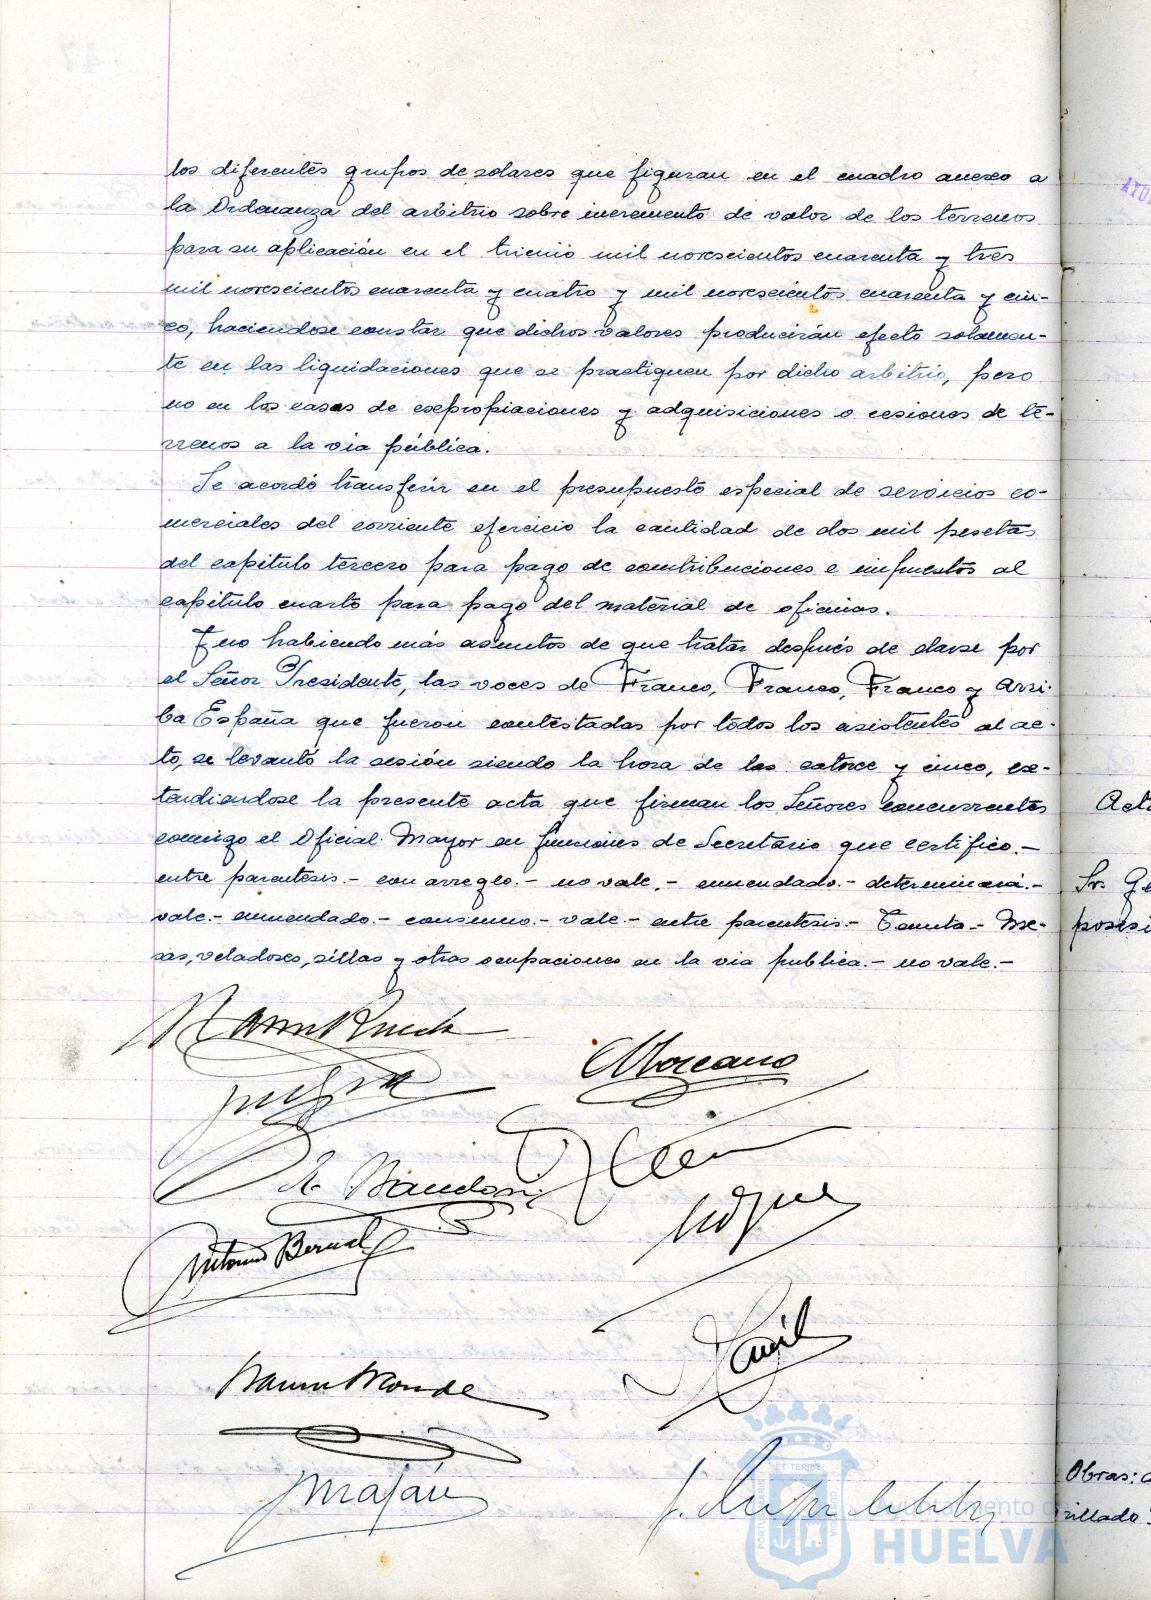 los diferentes grupos de solares que figuran en el cuadro anexo a
la Ordenanza del arbitrio sobre incremento de valor de los terrenos
para su aplicación en el trienio mil novescientos cuarenta y tres
mil novescientos cuarenta y cuatro y mil novescientos cuarenta y cin-
co, haciendose constar que dichos valores producirán efecto solamen-
te en las liquidaciones que se practiquen por dicho arbitrio, pero
no en los casos de expropiaciones y adquisiciones o cesiones de te-
rrenos a la via pública.
Se acordó transferir en el presupuesto especial de servicios co-
merciales del corriente ejercicio la cantidad de dos mil pesetas
del capitulo tercero para pago de contribuciones e impuestos al
capitulo cuarto para pago del material de oficinas.
Y no habiendo más asuntos de que tratar después de darse por
el Señor Presidente, las voces de Franco, Franco, Franco y Arri-
ba España que fueron contestadas por todos los asistentes al ac-
to, se levantó la sesión siendo la hora de las catorce y cinco, ex-
tendiendose la presente acta que firman los Señores concurrentes
conmigo el Oficial Mayor en funciones de Secretario que certifico.-
entre parentesis.- con arreglo.- no vale.- enmendado.- determinará.-
vale.- enmendado.- consumo.- vale.- entre parentesis.- Tenuta.- Me-
sas, veladores, sillas y otras ocupaciones en la via publica.- no vale.-
A Moreano
Antonio Bernal
Ayuntamiento de
HUELVA
Obras: